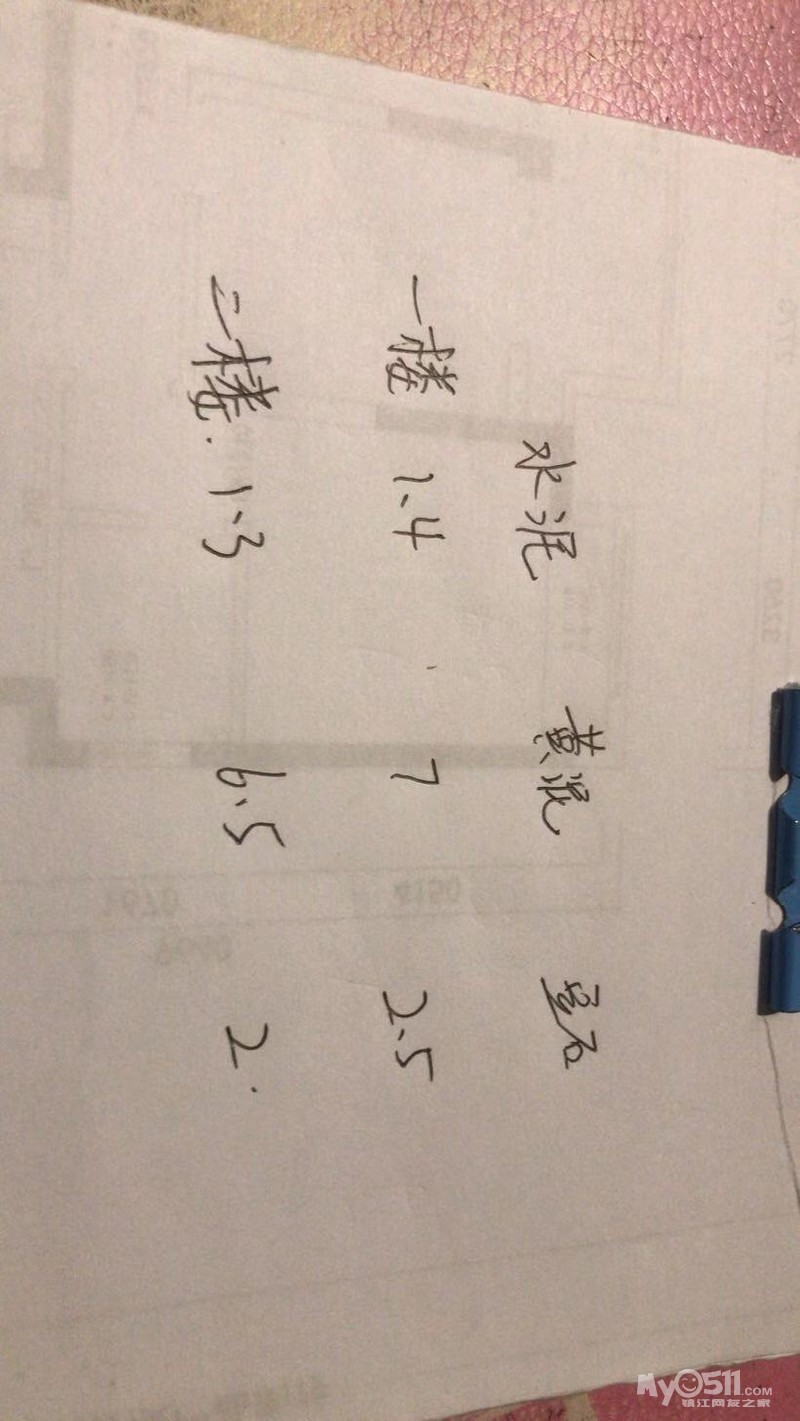 水泥 黄泥 豆石
一楼 1.4 7 2.5
二楼. 1.3 6.5 2.
4150
MY0511.COM
镇江网友之家